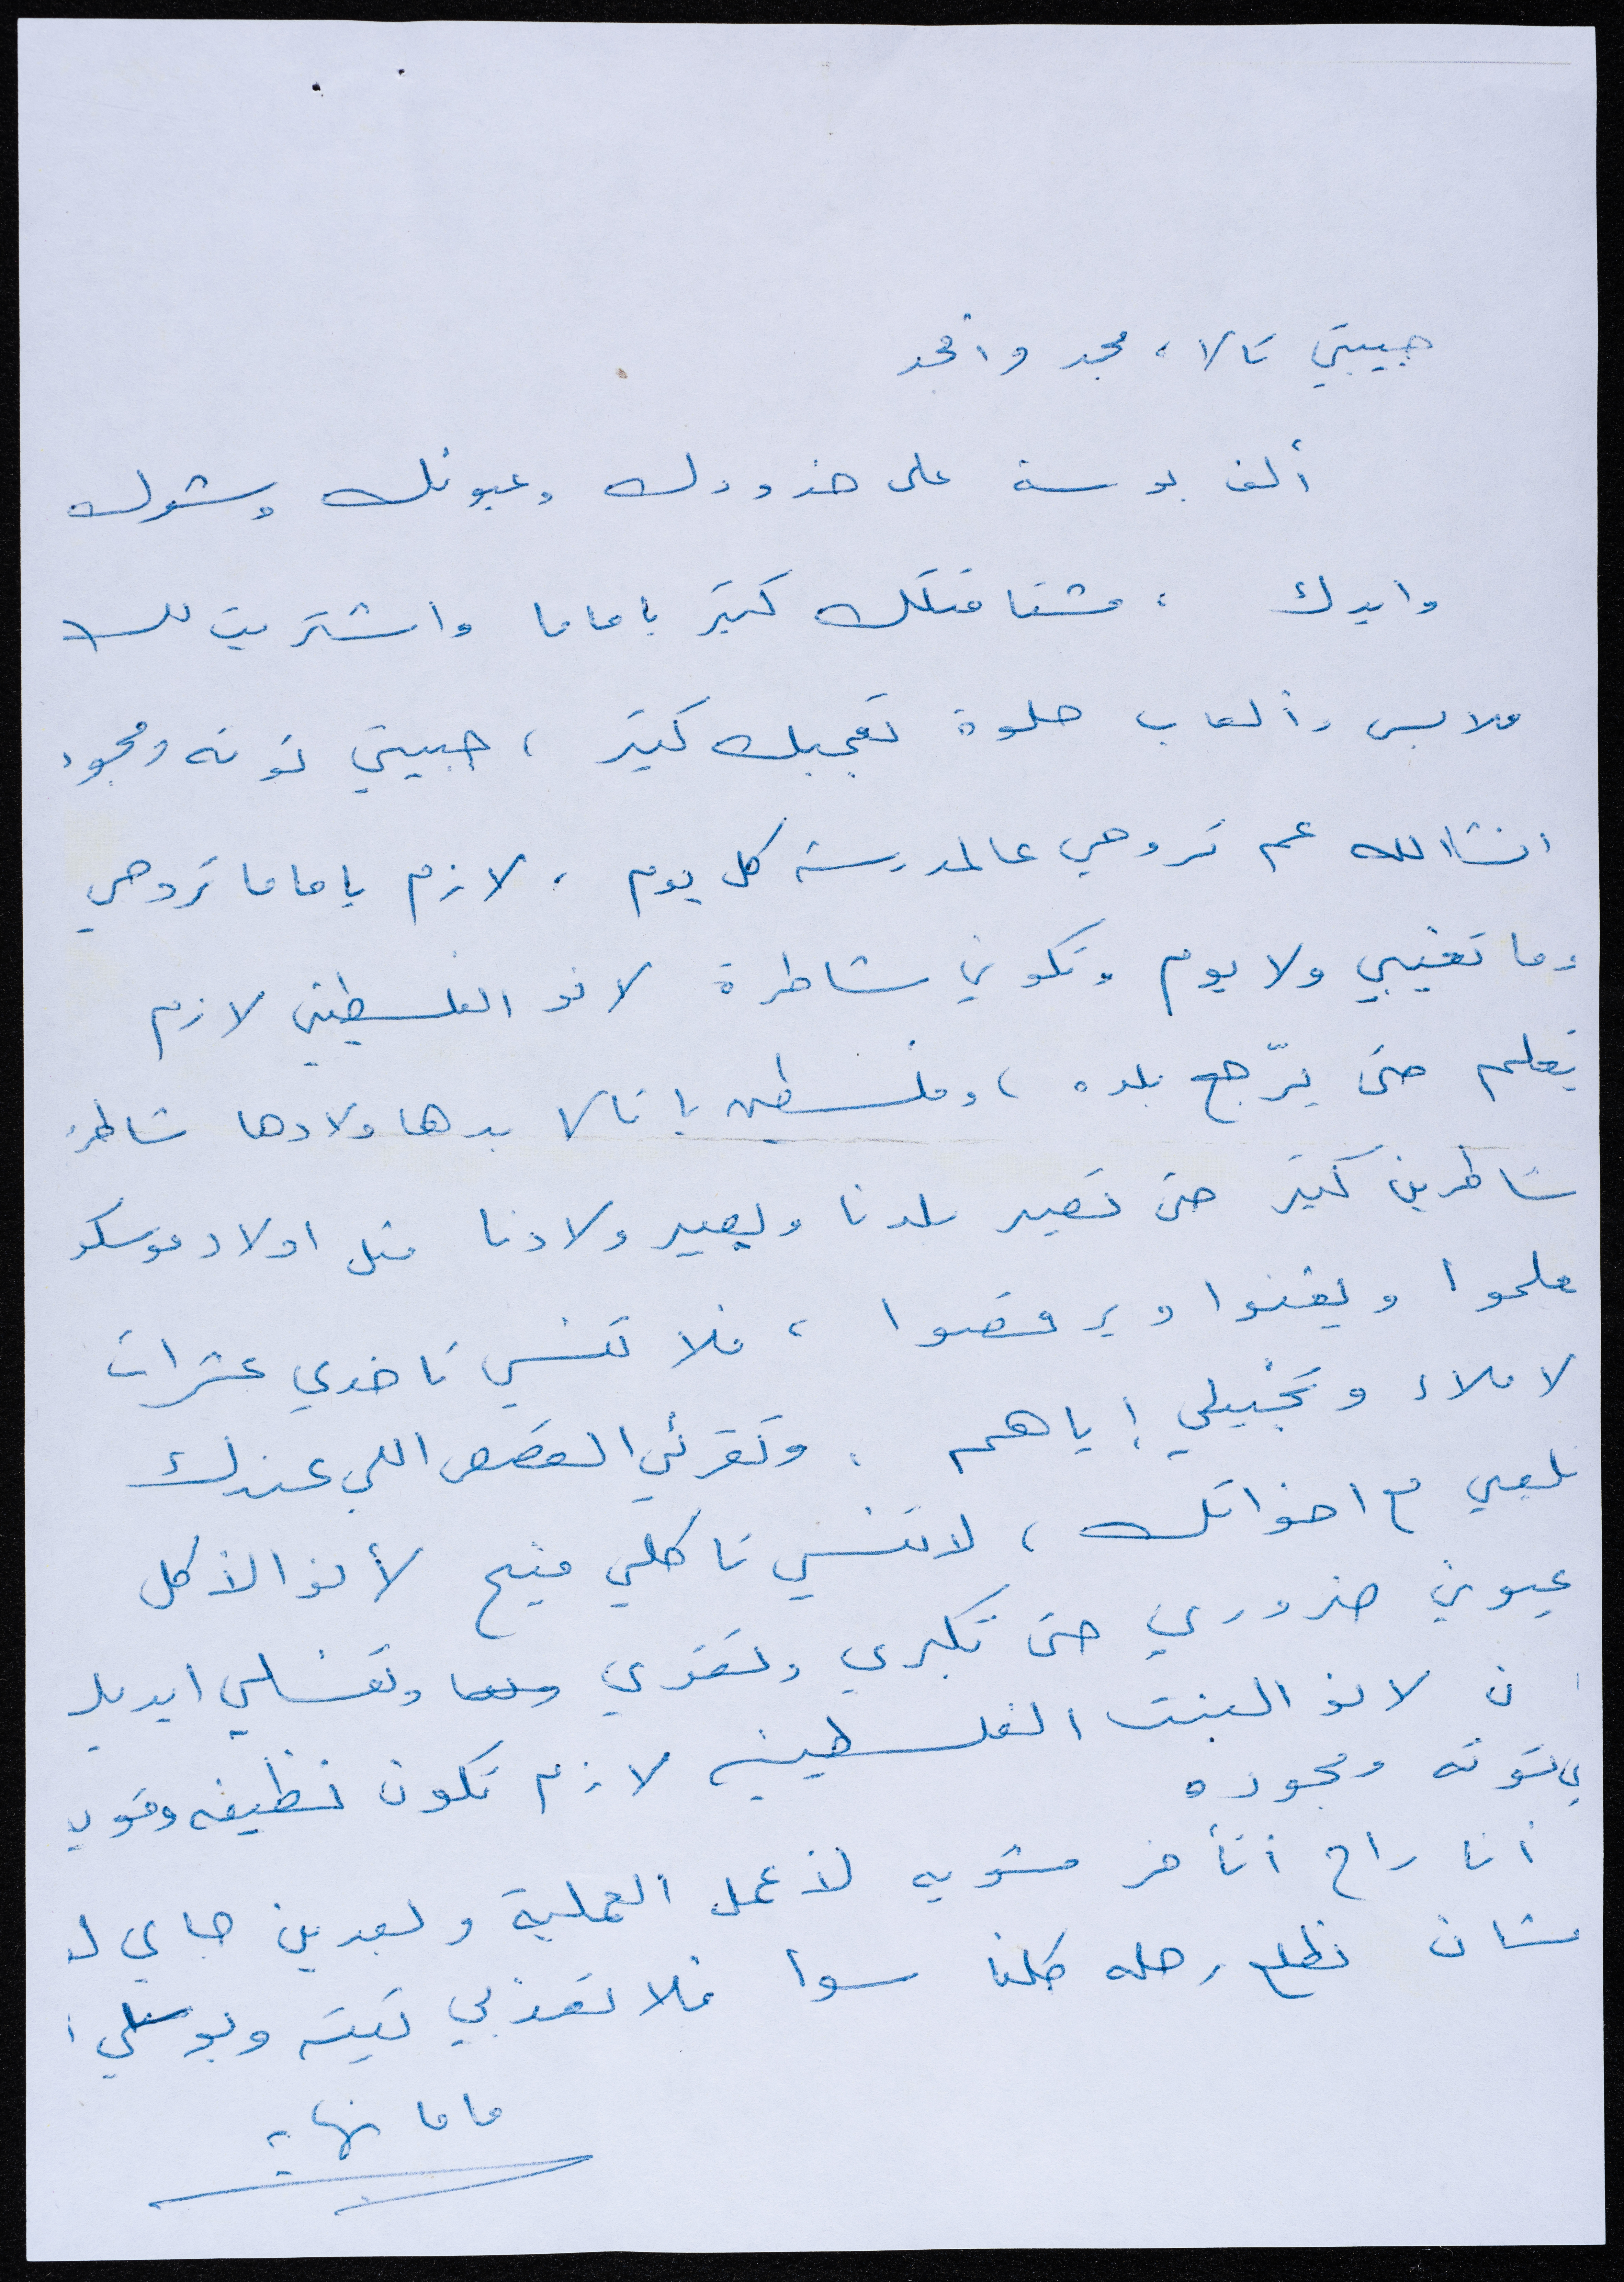 حبيبتي تالا، مجد وأمجد
ألف بوسة على خدودك وعيونك وشعرك
وايدك ، مشتاقتلك كتير ياماما واشتريت لك
ملابس وألعاب حلوة تعجبك كتير ، حبيبتي توته ومجود
انشاالله عم تروحي عالمدرسة كل يوم ، لازم ياماما تروحي
وما تغيبي ولا يوم وتكوني شاطرة لانو الفلسطيني لازم
يتعلم حتى يرّجع بلده ، وفلسطين يا تالا بدها ولادها شاطر
شاطرين كتير حتى تصير بلدنا ويصير ولادنا متل اولاد موسكو
علموا ويغنوا ويرقصوا ، فلا تنسي تاخدي عشرات
لاملاء وتخبيلي إياهم . وتقرئي القصص اللي عندك
تلعبي مع اخواتك ، لا تنسي تاكلي منيح لأنو الأكل
عيوني ضروري حتى تكبري وتقوي وتغسلي ايديك
ن لانو البنت الفلسطينيه لازم تكون نظيفه وقوي
ي توته ومجوده
أنا راح أتأخر شويه لأعمل العملية وبعدين جاي ل
مشان نطلع رحله كلنا سوا فلا تعذبي تيته وبوسيلي ا
ماما نهاية